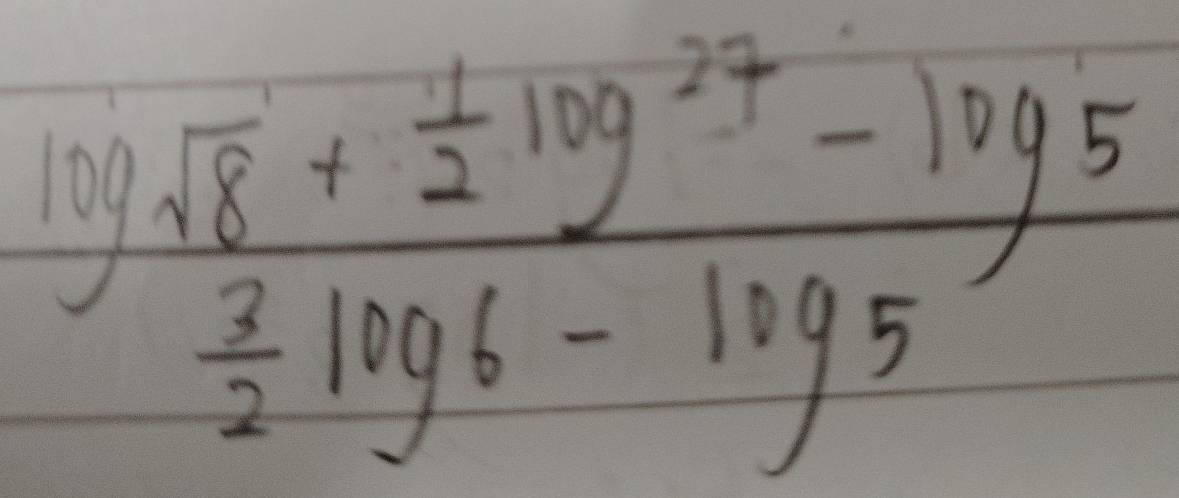 log √8 + 1/2 log 27 - log 5
3/2 log 6 - log 5